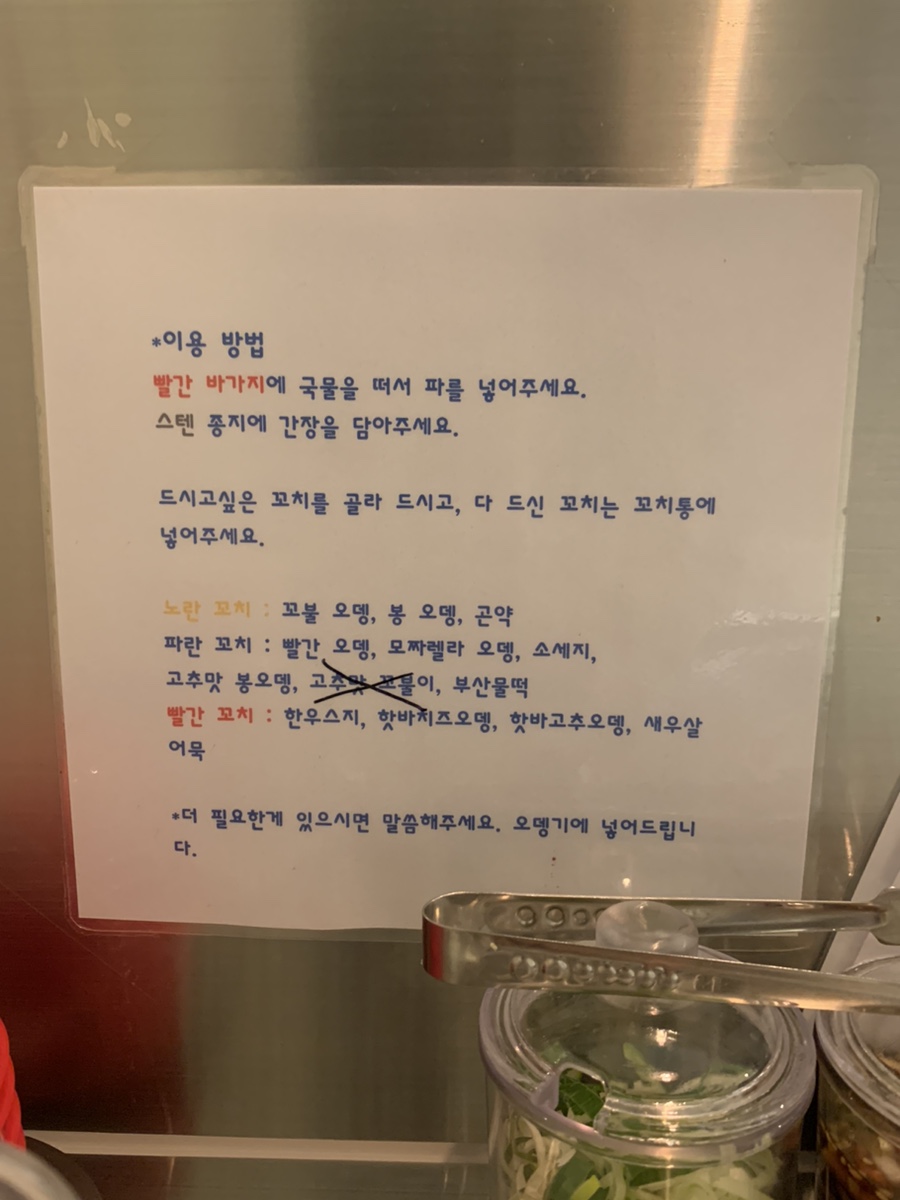 *이용 방법
빨간 바가지에 국물을 떠서 파를 넣어주세요.
스텐 종지에 간장을 담아주세요.
드시고싶은 꼬치를 골라 드시고, 다 드신 꼬치는 꼬치통에
넣어주세요.
노란 꼬치 : 꼬불 오뎅, 봉 오뎅, 곤약
파란 꼬치 : 빨간 오뎅, 모짜렐라 오뎅, 소세지,
고추맛 봉오뎅, 고추맛 꼬불이, 부산물떡
빨간 꼬치 : 한우스지, 핫바치즈오뎅, 핫바고추오뎅, 새우살
어묵
*더 필요한게 있으시면 말씀해주세요. 오뎅기에 넣어드립니
다.